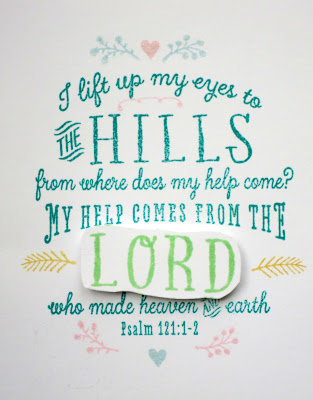 I lift up my eyes to
THE HILLS
from where does my help come?
MY HELP COMES FROM THE
LORD
who made heaven AND earth
Psalm 121:1-2